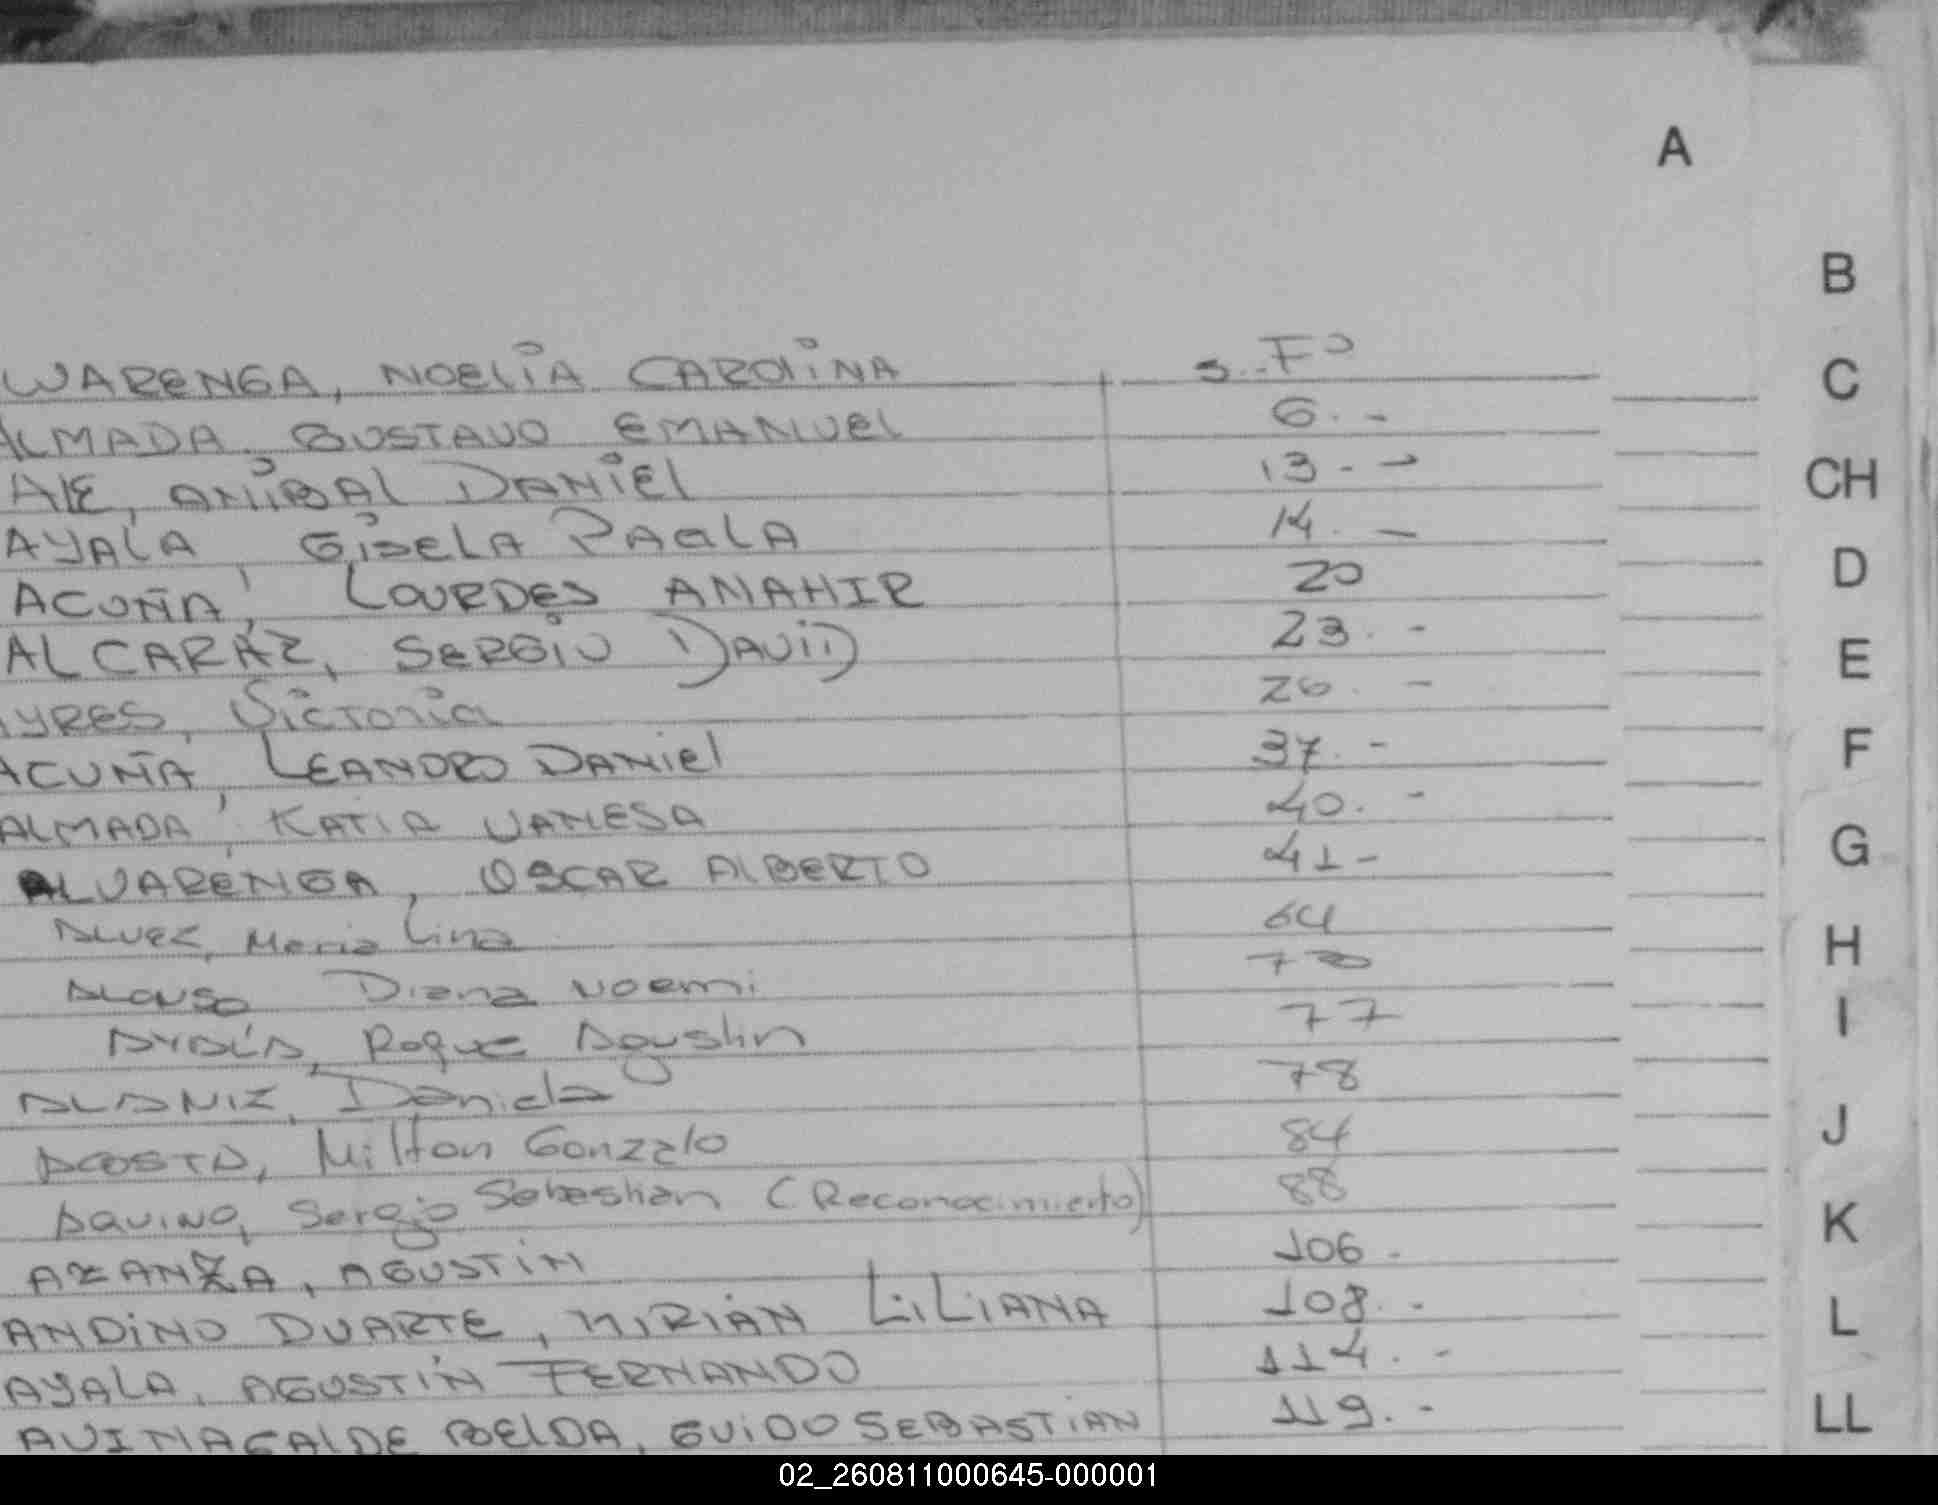 A
B
C
CH
D
E
F
G
H
I
J
K
L
LL
WARENGA, NOELIA CAROLINA 5..Fº
ALMADA. GUSTAVO EMANUEL 6.-
ALE, ANIBAL DANIEL 13.-
AYALA, GISELA PAOLA 14.-
ACUÑA, LOURDES ANAHIR 20
ALCARAZ, SERGIO DAVID 23.-
AYRES, Victoria 26.-
ACUÑA, LEANDRO DANIEL 37.-
ALMADA, KATIA VANESA 40.-
ALVARENGA, OSCAR ALBERTO 41-
ALVEZ, Maria Lina 64
ALONSO Diana Noemi 70
AYALA, Roque Agustin 77
ALANIZ, Daniela 78
ACOSTA, Milton Gonzalo 84
AQUINO, Sergio Sebastian (Reconocimiento) 88
AZANZA, AGUSTIN 106.
ANDINO DUARTE, MIRIAN LILIANA 108.-
AYALA, AGUSTIN FERNANDO 114.-
AVINAGALDE BELDA, GUIDO SEBASTIAN 119.-
02_260811000645-000001